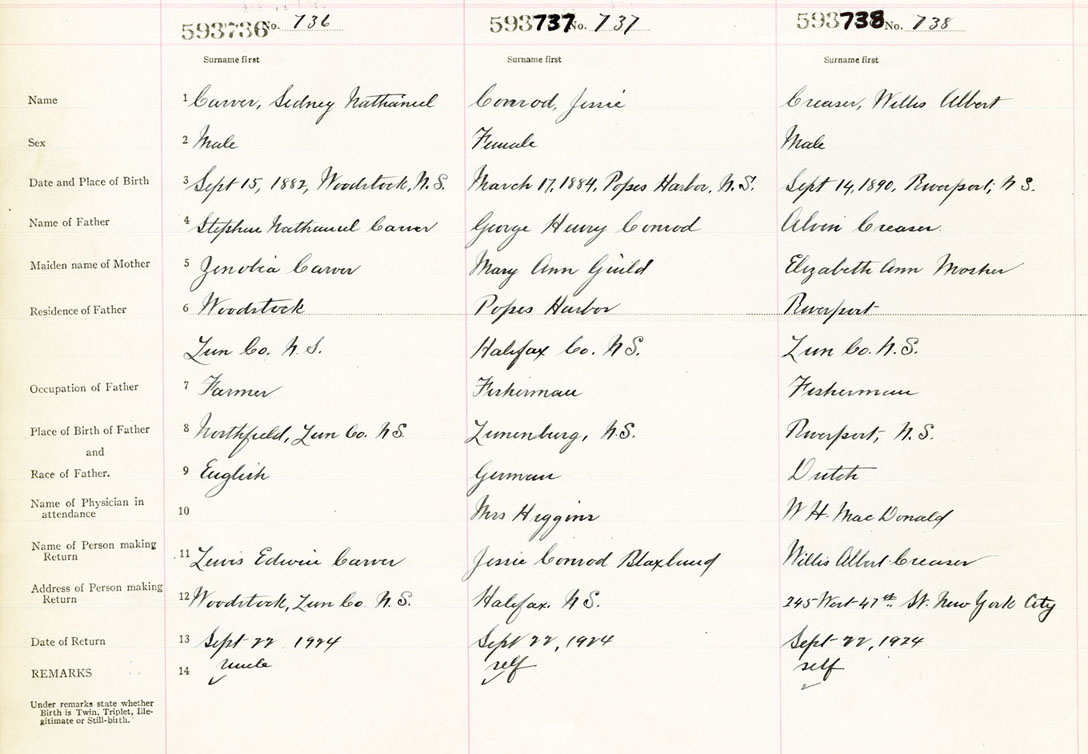 593736 No. 736 593737 No. 737 593738 No. 738
Surname first Surname first Surname first
Name 1 Carver, Sidney Nathaniel Conrod, Jessie Creaser, Willis Albert
Sex 2 Male Female Male
Date and Place of Birth 3 Sept 15, 1882, Woodstock, N.S. March 17, 1884, Popes Harbor, N.S. Sept 14, 1890, Riverport, N S.
Name of Father 4 Stephen Nathaniel Carver George Henry Conrod Alvin Creaser.
Maiden name of Mother 5 Zenobia Carver Mary Ann Guild Elizabeth Ann Mosher
Residence of Father 6 Woodstock Popes Harbor Riverport
Lun Co. N. S. Halifax Co. N S. Lun Co. N. S.
Occupation of Father 7 Farmer Fisherman Fisherman
Place of Birth of Father 8 Northfield, Lun Co. N S. Lunenburg, N.S. Riverport, N. S.
and
Race of Father. 9 English German Dutch
Name of Physician in
attendance 10 Mrs Higgins W H. MacDonald
Name of Person making
Return 11 Lewis Edwin Carver Jessie Conrod Blaxland Willis Albert Creaser
Address of Person making
Return 12 Woodstock, Lun Co. N. S. Halifax, N S. 245 West 47th St. New York City
Date of Return 13 Sept 22 1924 Sept 22, 1924 Sept 22, 1924
REMARKS 14 uncle self self
Under remarks state whether
Birth is Twin, Triplet, Ille-
gitimate or Still-birth.